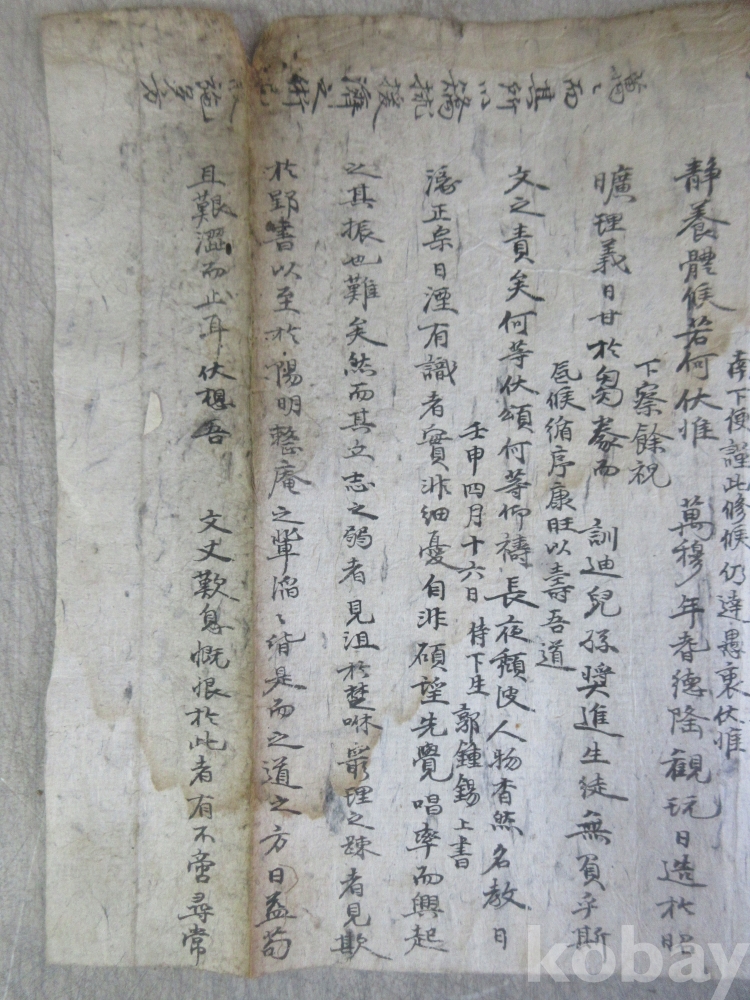 南下便謹此修候仍達愚衷伏惟
靜養體候若何伏惟 萬穆年耆德隆觀玩日造於昭
下察餘祝
曠理義日甘於芻豢而 訓迪兒孫奬進生徒無負乎斯
候循序康旺以壽吾道
文之責矣何等伏頌何等仰禱長夜頹波人物杳然名敎日
壬申四月十六日 侍下生 郭鍾錫 上書
正宗日湮有識者實非細憂自非碩望先覺唱率而興起
之其振也難矣然而其立志之弱者見沮於楚咻窮理之疎者見欺
於郢書以至於陽明整庵之輩滔〻皆是而之道之方日益苟
且艱澀而止耳伏想吾 文丈歎息慨恨於此者有不啻尋常
萬〻而其所以抗援濟之術施多方
kobay